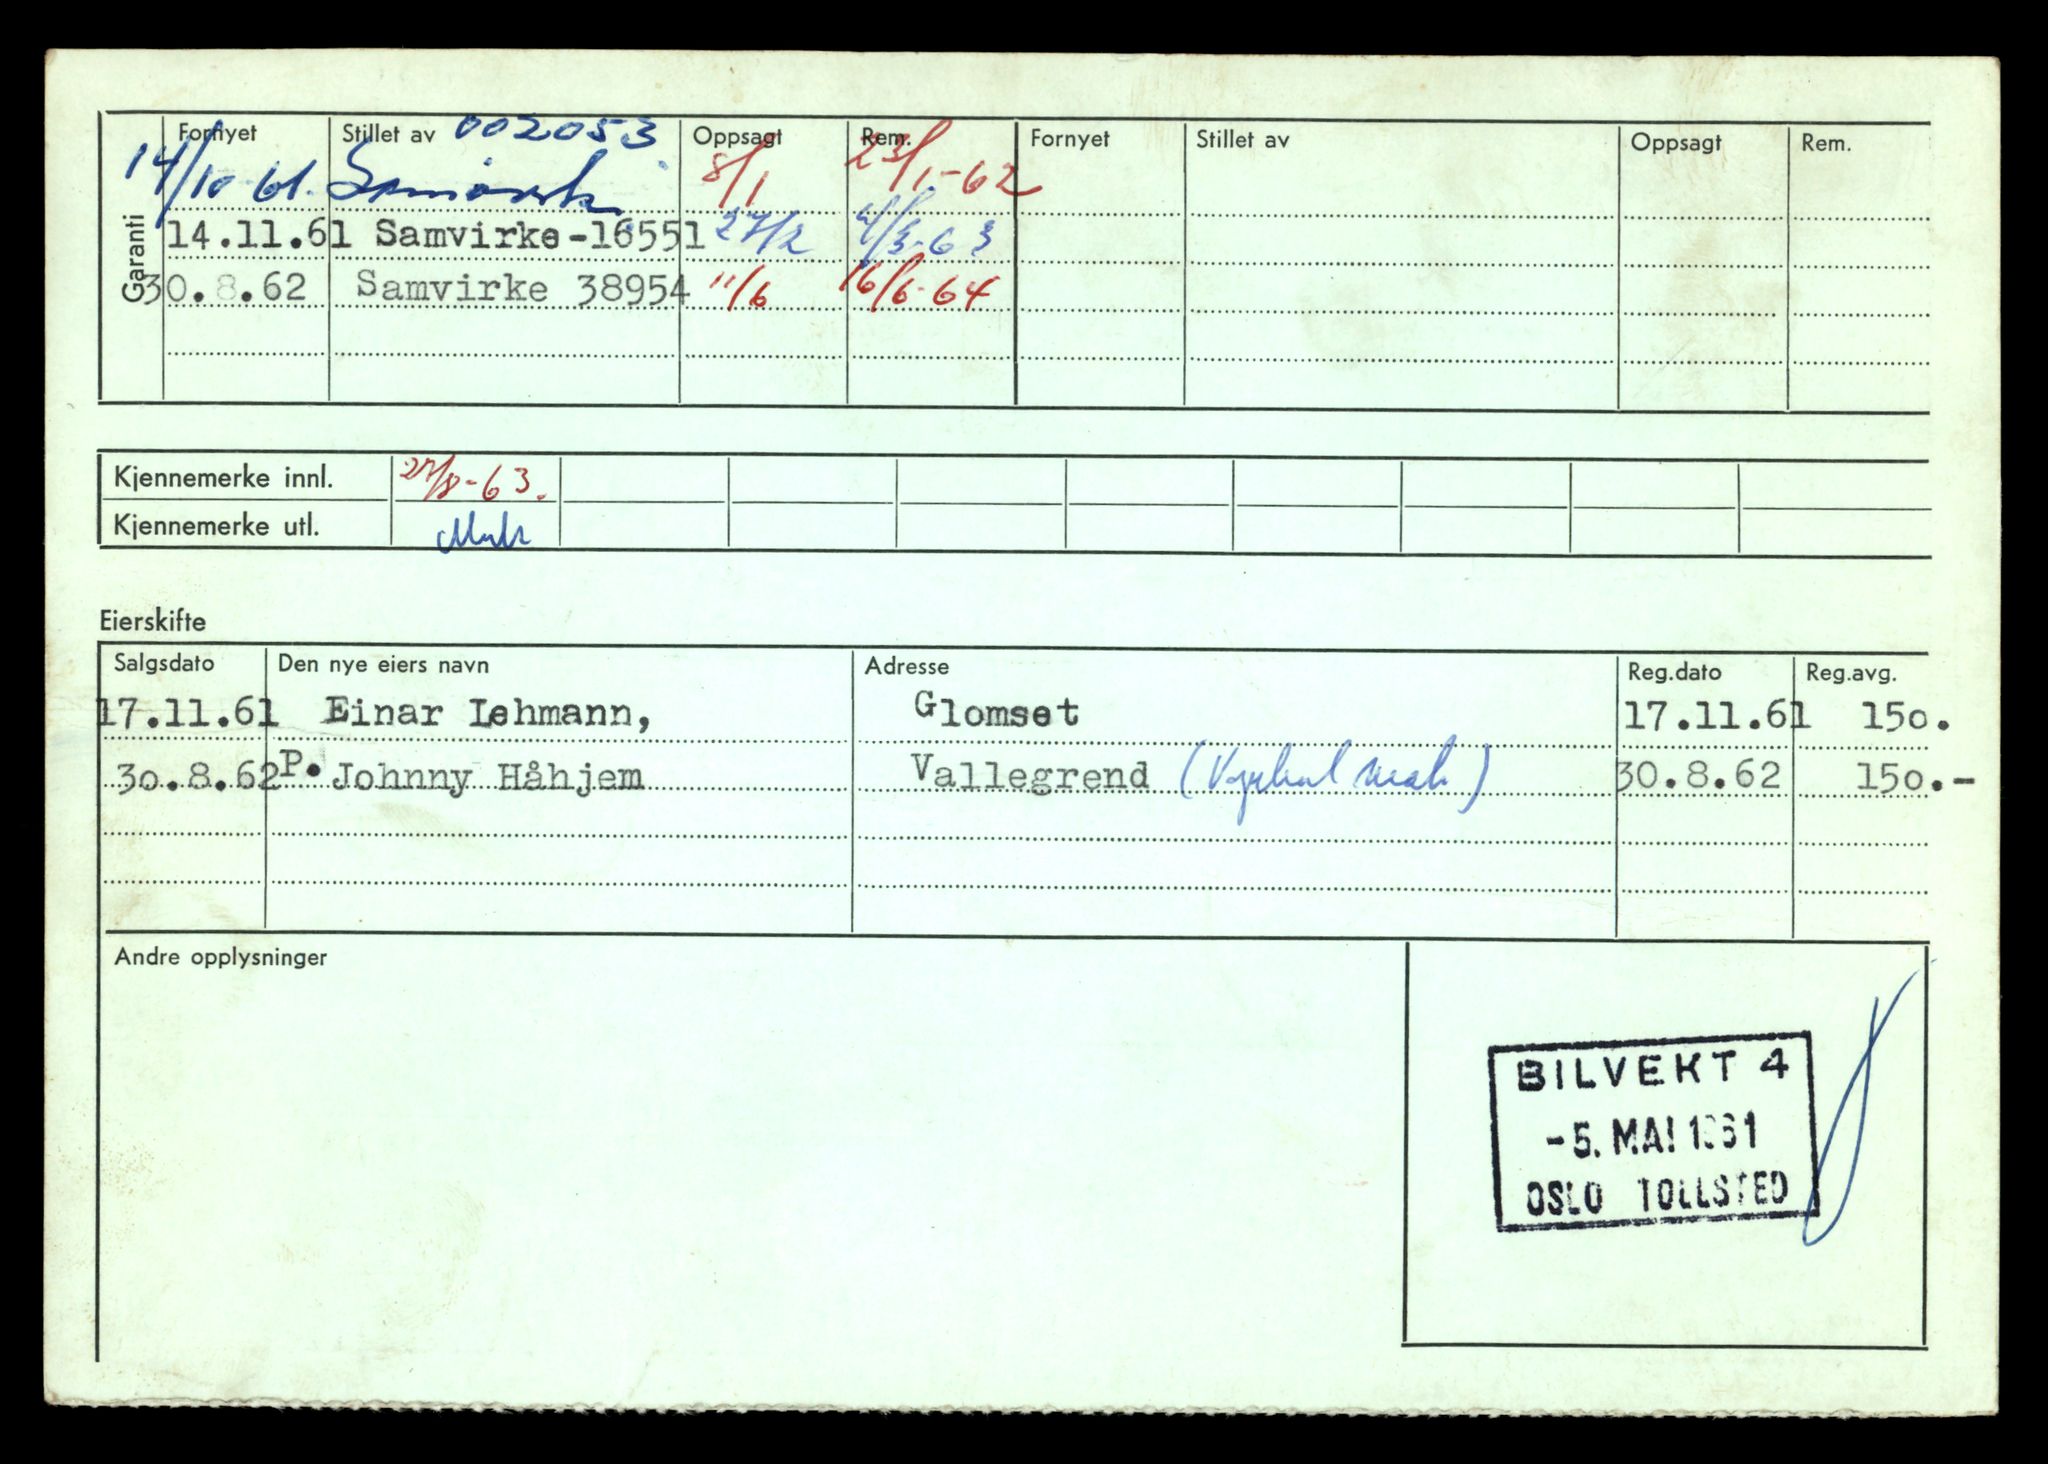 Garanti
Fornyet Stillet av 002053 Oppsagt Rem. Fornyet Stillet av Oppsagt Rem.
14/10 61. Samvirke 8/1 23/1-62
14.11.61 Samvirke-16551 27/2 4/3-63
30.8.62 Samvirke 38954 11/6 16/6-64
Kjennemerke innl. 27/8-63.
Kjennemerke utl.
Eierskifte
Salgsdato Den nye eiers navn Adresse Reg.dato Reg.avg.
17.11.61 Einar Lehmann, Glomset 17.11.61 150.
30.8.62 P. Johnny Håhjem Vallegrend 30.8.62 150.-
Andre opplysninger
BILVEKT 4
-5. MAI 1961
OSLO TOLLSTED